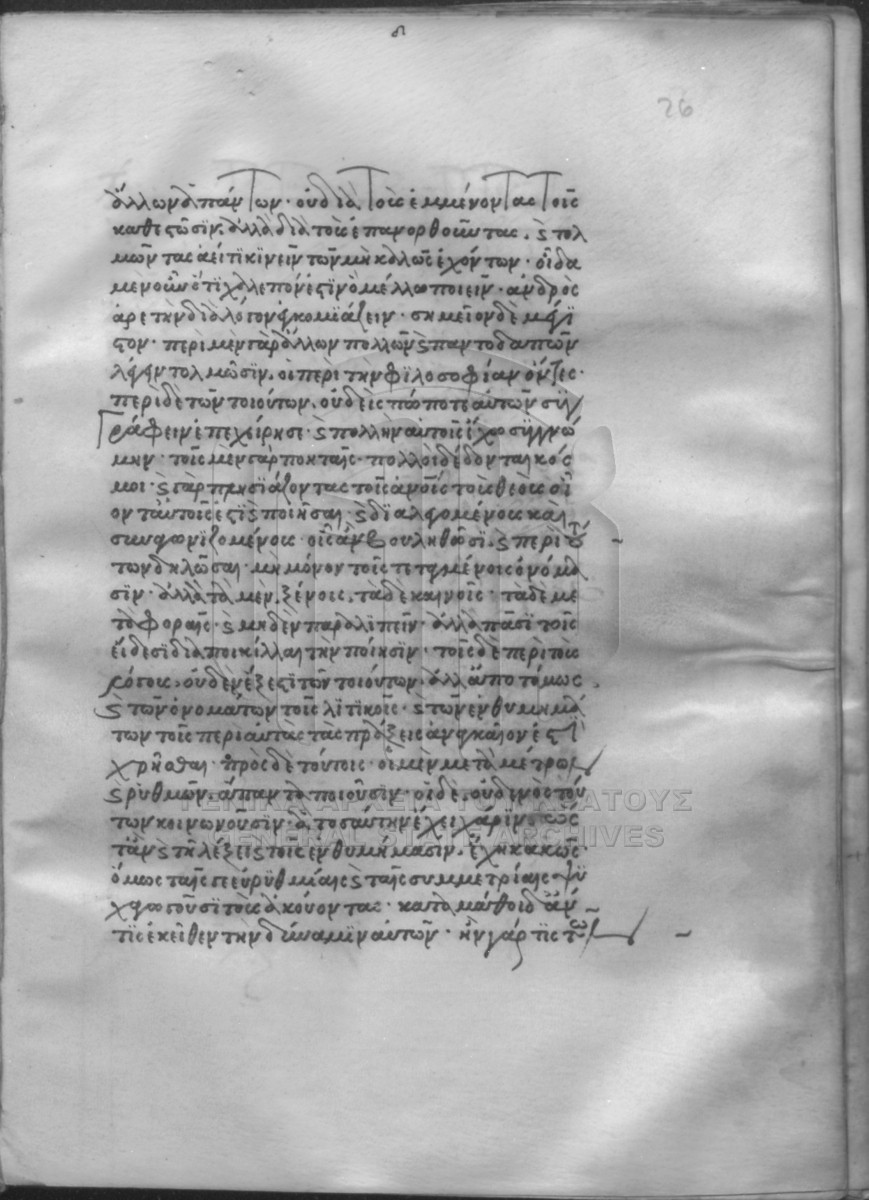 δ
26
ἄλλων ἁπάντων · οὐ διὰ τοὺς ἐμμένοντας τοῖς
καθεστῶσϊν. ἀλλὰ διὰ τοὺς ἐπανορθοῦντας. ϗ τολ
μῶντας ἀεί τι κϊνεῖν τῶν μὴ καλῶς ἐχόντων · οἶδα
μὲν οὖν ὅτϊ χαλεπόν ἐστϊν ὃ μέλλω ποιεῖν · ἀνδρὸς
ἀρετὴν διὰ λόγων ἐγκωμϊάζειν · σημεῖον δὲ μέγϊ
στον · περὶ μὲν γὰρ ἄλλων πολλῶν ϗ παντοδαπῶν
λέγειν τολμῶσϊν. οἱ περὶ τὴν φϊλοσοφίαν ὄντες ·
περὶ δὲ τῶν τοιούτων. οὐδεὶς πώποτε αὐτῶν συγ
γράφειν ἐπεχείρησε · ϗ πολλὴν αὐτοῖς ἔχω συγγνώ
μην · τοῖς μὲν γὰρ ποιηταῖς · πολλοὶ δέδονται κόσ
μοι · ϗ γὰρ πλησϊάζοντας τοῖς ἀνοῖς τοὺς θεοὺς οἷ
όν τ' αὐτοῖς ἐστϊ ποιῆσαι · ϗ δϊαλεγομένους καὶ
συναγωνϊζομένους · οἷς ἂν βουληθῶσϊ. ϗ περὶ τού
των δηλῶσαι · μὴ μόνον τοῖς τεταγμένοις ὀνόμα
σϊν · ἀλλὰ τὰ μὲν ξένοις. τὰ δὲ καινοῖς · τὰ δὲ με
ταφοραῖς · ϗ μηδὲν παραλϊπεῖν · ἀλλὰ πᾶσϊ τοῖς
εἴδεσϊ διαποικίλλαι τὴν ποίησϊν · τοῖς δὲ περὶ τοὺς
λόγους. οὐδὲν ἔξεστϊ τῶν τοιούτων · ἀλλ' ἀποτόμως
ϗ τῶν ὀνομάτων τοῖς πολϊτϊκοῖς · ϗ τῶν ἐνθυμημά
των τοῖς περὶ αὐτὰς τὰς πράξεις ἀναγκαῖόν ἐστϊ
χρῆσθαι · πρὸς δὲ τούτοις · οἱ μὲν μετὰ μέτρων
ϗ ῥυθμῶν. ἅπαντα ποιοῦσϊν · οἱ δὲ. οὐδενὸς τού
των κοινωνοῦσϊν · ἃ τοσαύτην ἔχει χάρϊν. ὡς
τἂν ϗ τῇ λέξει ϗ τοῖς ἐνθυμήμασϊν. ἔχῃ κακῶς ·
ὅμως ταῖς γε εὐρυθμίαις ϗ ταῖς συμμετρίαις ψυ
χαγωγοῦσϊ τοὺς ἀκούοντας · καταμάθοι δ' ἄν
τϊς ἐκεῖθεν τὴν δύναμϊν αὐτῶν · ἢν γάρ τϊς τῶν
ΓΕΝΙΚΑ ΑΡΧΕΙΑ ΤΟΥ ΚΡΑΤΟΥΣ
GENERAL STATE ARCHIVES